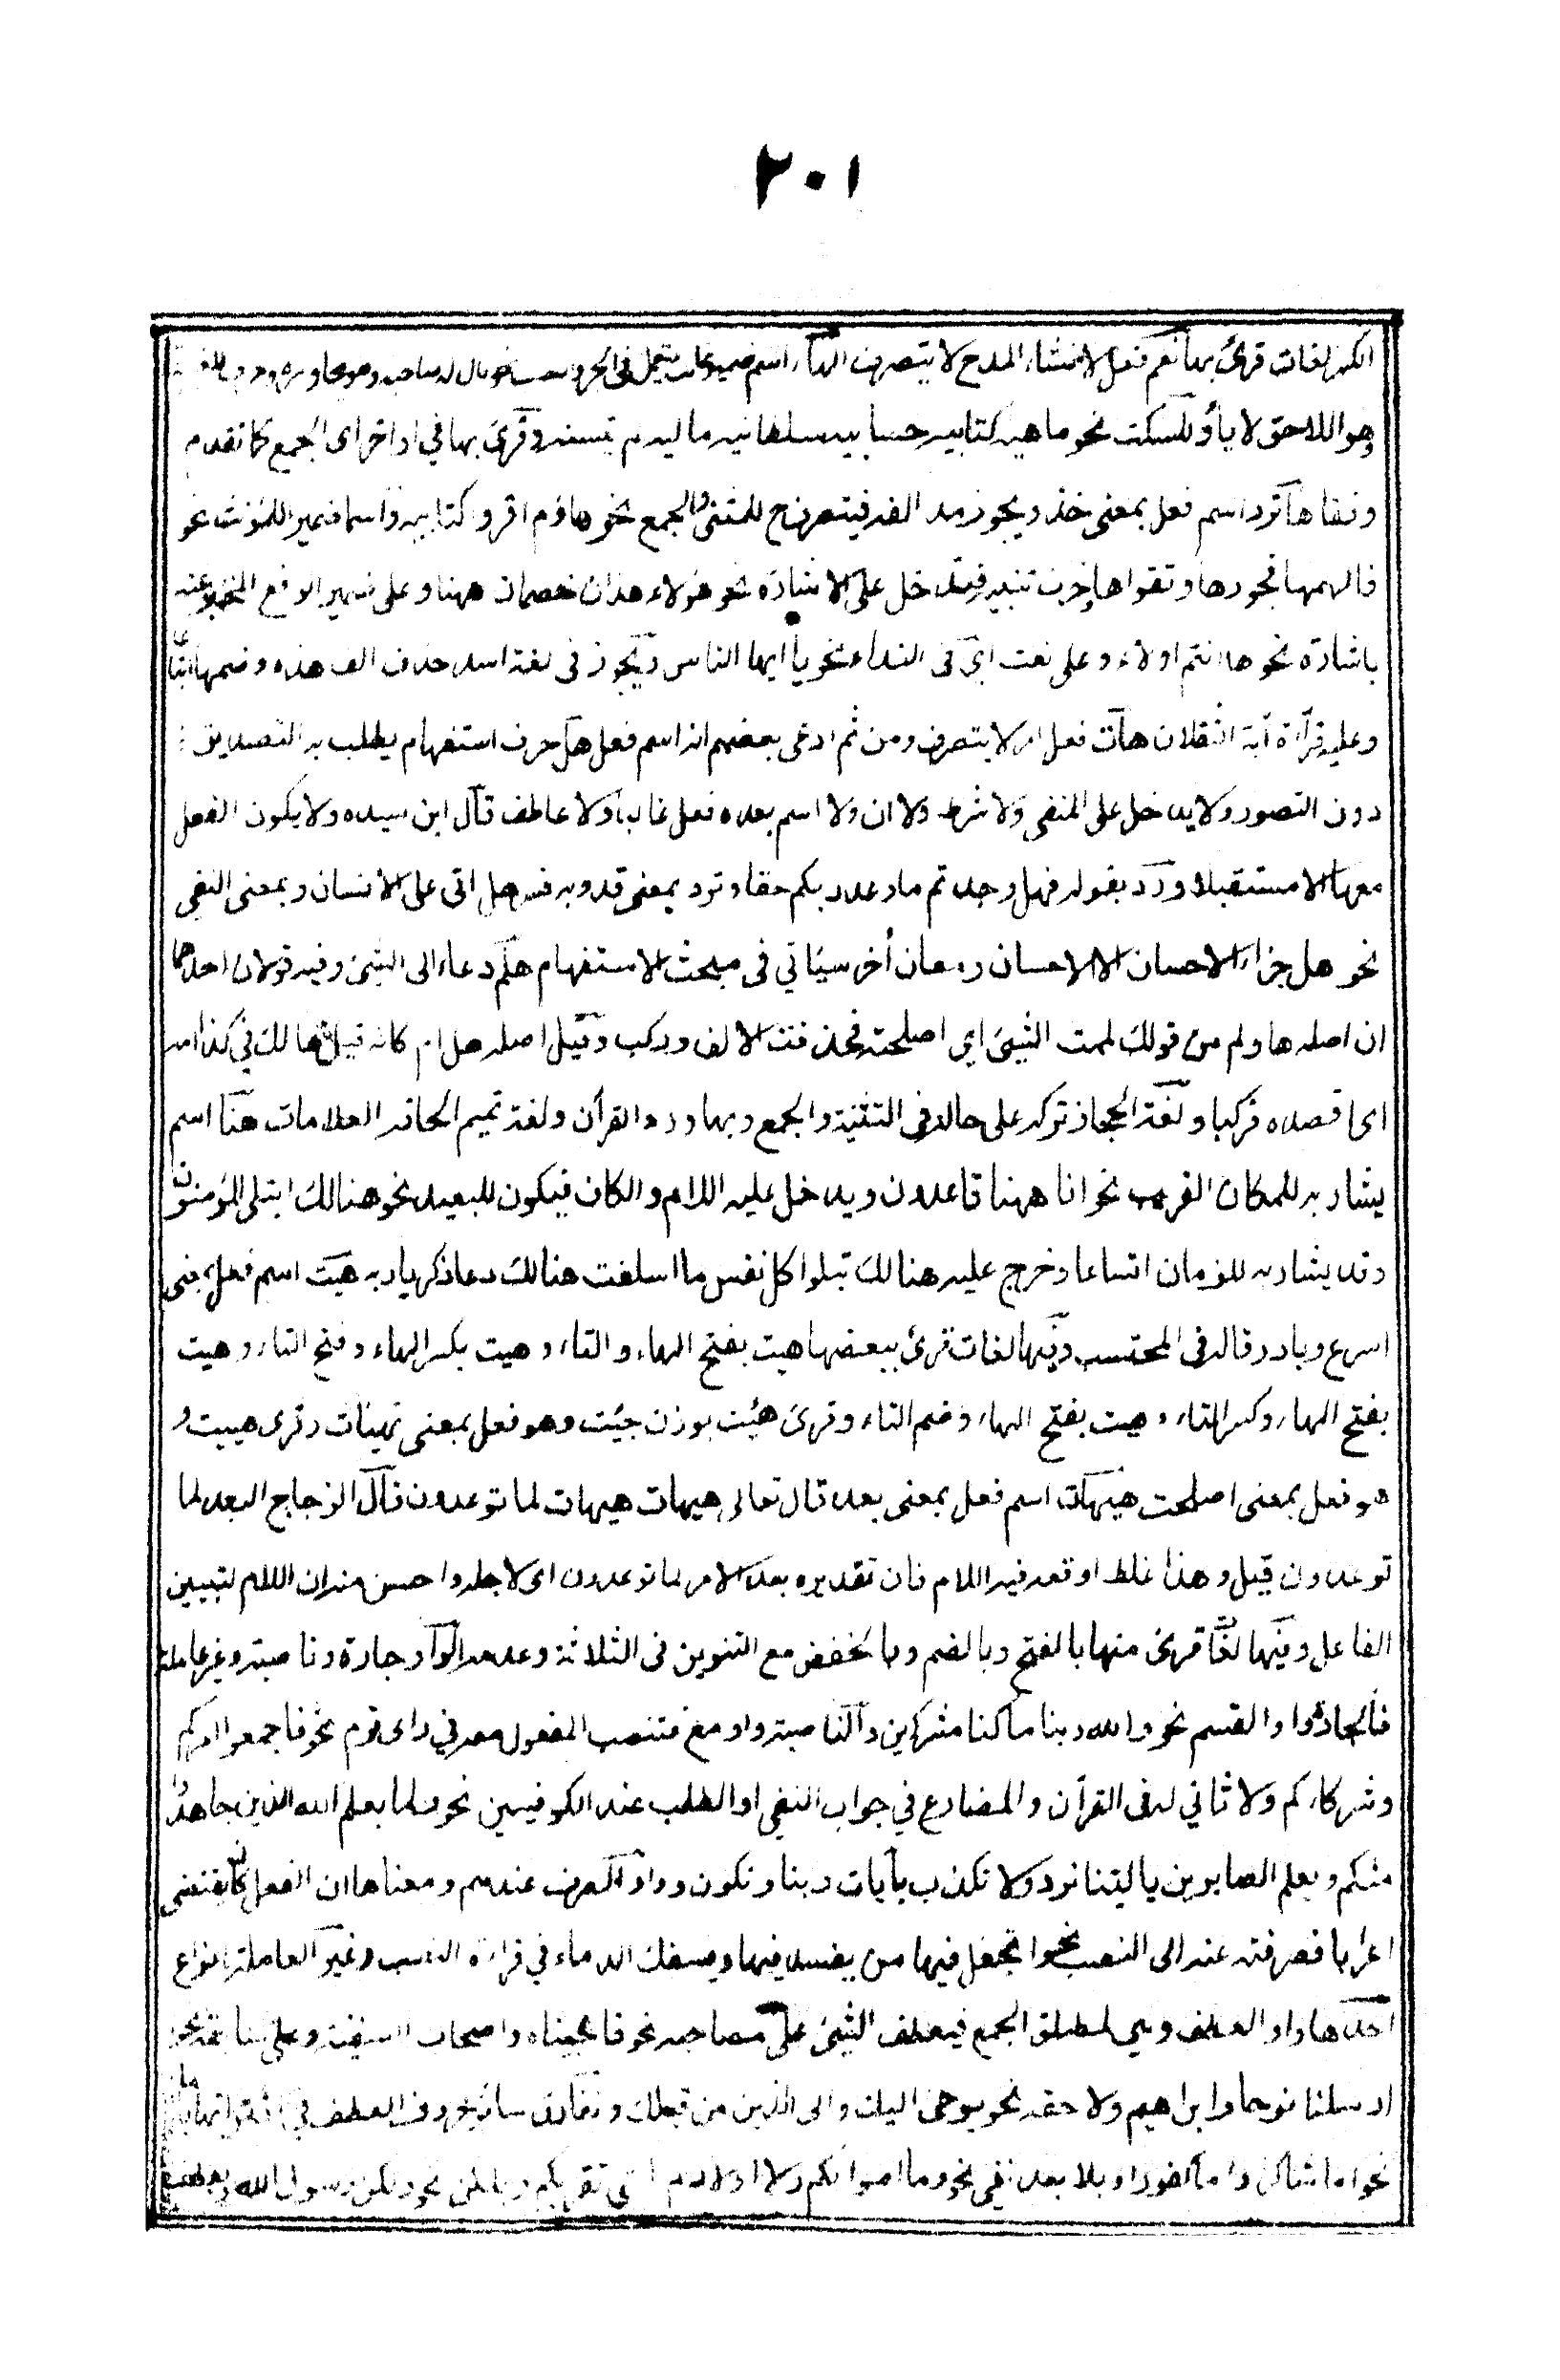 ٢٠١
الكسر لغات قرئ بها نعم فعل لانشاء المدح لا يتصرف الهاء اسم ضمير غائب يستعمل فى الجر والنصب نحو قال له صاحبه وهو يحاوره وحرف للغيبة
وهو اللاحق لايا وللسكت نحو ماهيه كتابيه حسابيه سلطانيه ماليه لم يتسنه وقرئ بها في اواخر اى الجمع كما تقدم
وقفا هآ ترد اسم فعل بمعنى خذ ويجوز مد الفه فيتصرف ح للمثنى والجمع نحو هاؤم اقروا كتابيه واسما ضمير اللمؤنث نحو
فالهمها فجورها وتقواها وحرف تنبيه فيدخل على الاشارة نحو هؤلاء هذان خصمان ههنا وعلى ضمير الرفع المخبر عنه
باشارة نحو ها انتم اولاء وعلى نعت اىّ فى النداء نحو يا ايها الناس ويجوز فى لغة اسد حذف الف هذه وضمها اتباعا
وعليه قرآءة آية الثقلان هآت فعل امر لا يتصرف ومن ثم ادعى بعضهم انه اسم فعل هل حرف استفهام يطلب به التصديق
دون التصور ولا يدخل على المنفى ولا شرط ولا ان ولا اسم بعده فعل غالبا ولا عاطف قال ابن سيده ولا يكون الفعل
معها الا مستقبلا ورد بقوله فهل وجدتم ما وعد ربكم حقا وترد بمعنى قد وبه فسر هل اتى على الانسان وبمعنى النفى
نحو هل جزاء الاحسان الا الاحسان ومعان أخر سيأتي فى مبحث الاستفهام هلم دعاء الى الشئ وفيه قولان احدهما
ان اصله ها ولم من قولك لممت الشيئ اي اصلحته فحذفت الالف وركب وقيل اصله هل ام كانه قيل هل لك في كذا امه
اى اقصده فركبا ولغة الحجاز تركه على حاله فى التثنية والجمع وبها ورد القرآن ولغة تميم الحاقه العلامات هنا اسم
يشار به للمكان القريب نحو انا ههنا قاعدون ويدخل عليه اللام والكاف فيكون للبعيد نحو هنالك ابتلى المؤمنون
وقد يشار به للزمان اتساعا وخرج عليه هنالك تبلوا كل نفس ما اسلفت هنالك دعا زكريا ربه هيت اسم فعل بمعنى
اسرع وبادر قاله فى المحتسب وفيها لغات قرئ ببعضها هيت بفتح الهاء والتاء وهيت بكسر الهاء وفتح التاء وهيت
بفتح الهاء وكسر التاء وهيت بفتح الهاء وضم التاء وقرئ هئت بوزن جئت وهو فعل بمعنى تهيئات وقرى هييت و
هو فعل بمعنى اصلحت هيهات اسم فعل بمعنى بعد قال تعالى هيهات هيهات لما توعدون قال الزجاج البعد لما
توعدون قيل وهذا غلط اوقعه فيه اللام فان تقديره بعد الامر لما توعدون اى لاجله واحسن منه ان اللام لتبيين
الفاعل وفيها لغات قرئ منها بالفتح وبالضم وبالخفض مع التنوين فى الثلاثة وعدمه الواو جارة وناصبة وغير عاملة
فالجارة واو القسم نحو والله ربنا ماكنا مشركين والناصبة واو مع فتنصب المفعول معه في راى قوم نحو فاجمعوا امركم
وشركاءكم ولا ثاني له فى القرآن والمضارع في جواب النفى او الطلب عند الكوفيين نحو ولما يعلم الله الذين جاهدوا
منكم ويعلم الصابرين يا ليتنا نرد ولا نكذب بأيات ربنا ونكون وواو الصرف عندهم ومعناها ان الفعل كان يقتضى
اعرابا فصرفته عنه الى النصب نحو اتجعل فيها من يفسد فيها ويسفك الدماء في قراءة النصب وغير العاملة انواع
احدها واو العطف وهي لمطلق الجمع فيعطف الشيئ على مصاحبه نحو فانجيناه واصحاب السفينة وعلى سابقه نحو
ارسلنا نوحا وابراهيم ولاحقه نحو يوحى اليك والى الذين من قبلك وتفارق سائر حروف العطف في اقترانها باما
نحو اما شاكرا واما كفورا وبلا بعد نفي نحو وما اموالكم ولا اولادكم بالتى تقربكم وبلكن نحو ولكن رسول الله وبعطف